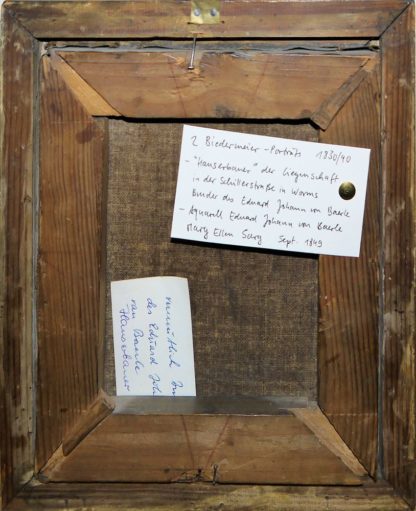 2 Biedermeier-Porträts 1830/40
- "Hauserbauer" der Liegenschaft
in der Schillerstraße in Worms
Bruder des Eduard Johann von Baerle
- Aquarell Eduard Johann von Baerle
Mary Ellen Sarg Sept. 1849
vermutlich
des Eduard Joh
van Baerle
Hauserbauer